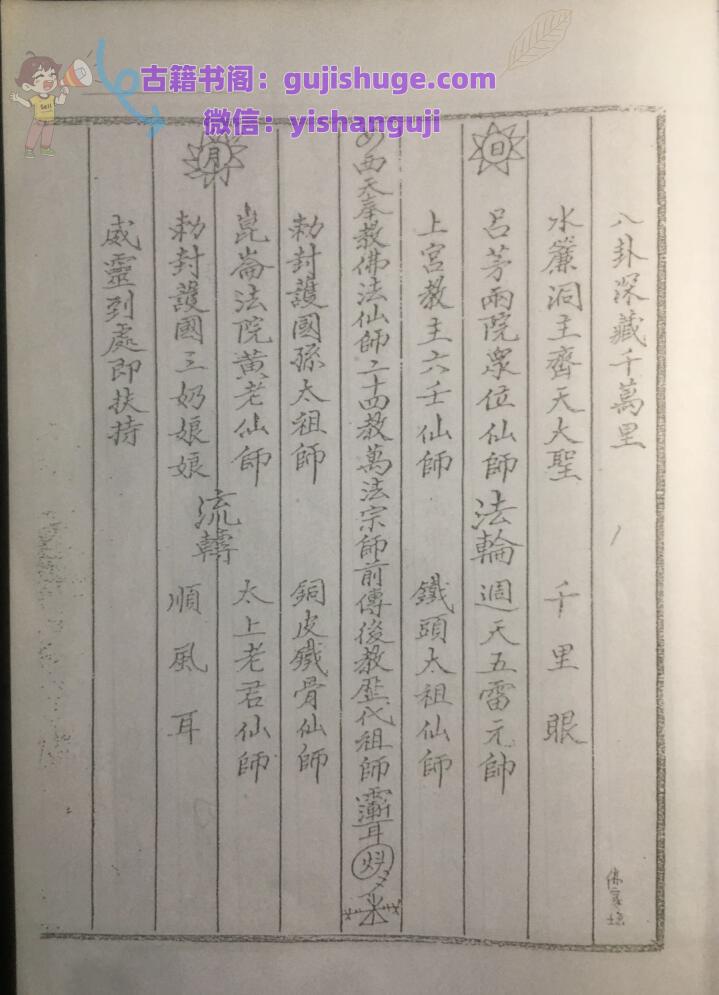 古籍书阁：gujishuge.com
微信：yishanguji
Sell
八卦深藏千萬里
水簾洞主齊天大聖 千里眼
日 呂茅兩院眾位仙師 法輪 週天五雷元帥
上宮教主六壬仙師 鐵頭太祖仙師
西天奉教佛法仙師二十四教萬法宗師前傳後教歷代祖師
勅封護國孫太祖師 銅皮鐵骨仙師
崑崙法院黃老仙師 太上老君仙師
月 勅封護國三奶娘娘 流轉 順風耳
威靈到處即扶持